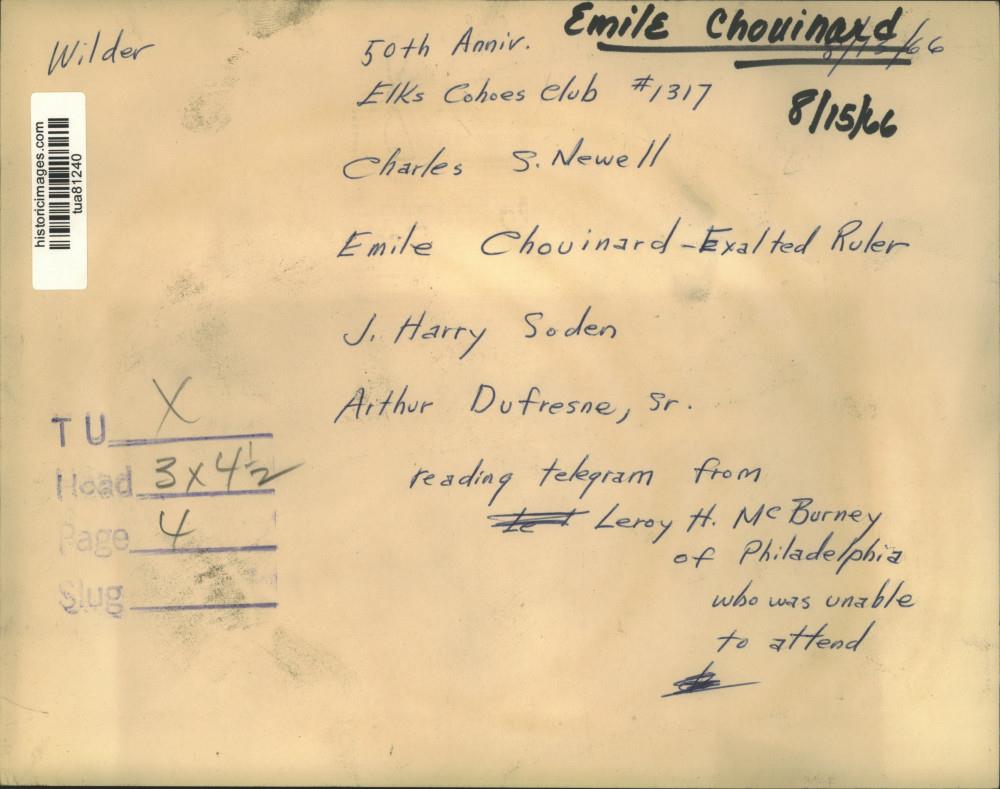 Emile Chouinard
Wilder
50th Anniv.
8/15/66
Elks Cohoes Club #1317
8/15/66
historicimages.com
tua81240
Charles S. Newell
Emile Chouinard - Exalted Ruler
J. Harry Soden
Arthur Dufresne, Sr.
TU X
Head 3x4½
Page 4
Slug
reading telegram from
Leroy H. McBurney
of Philadelphia
who was unable
to attend